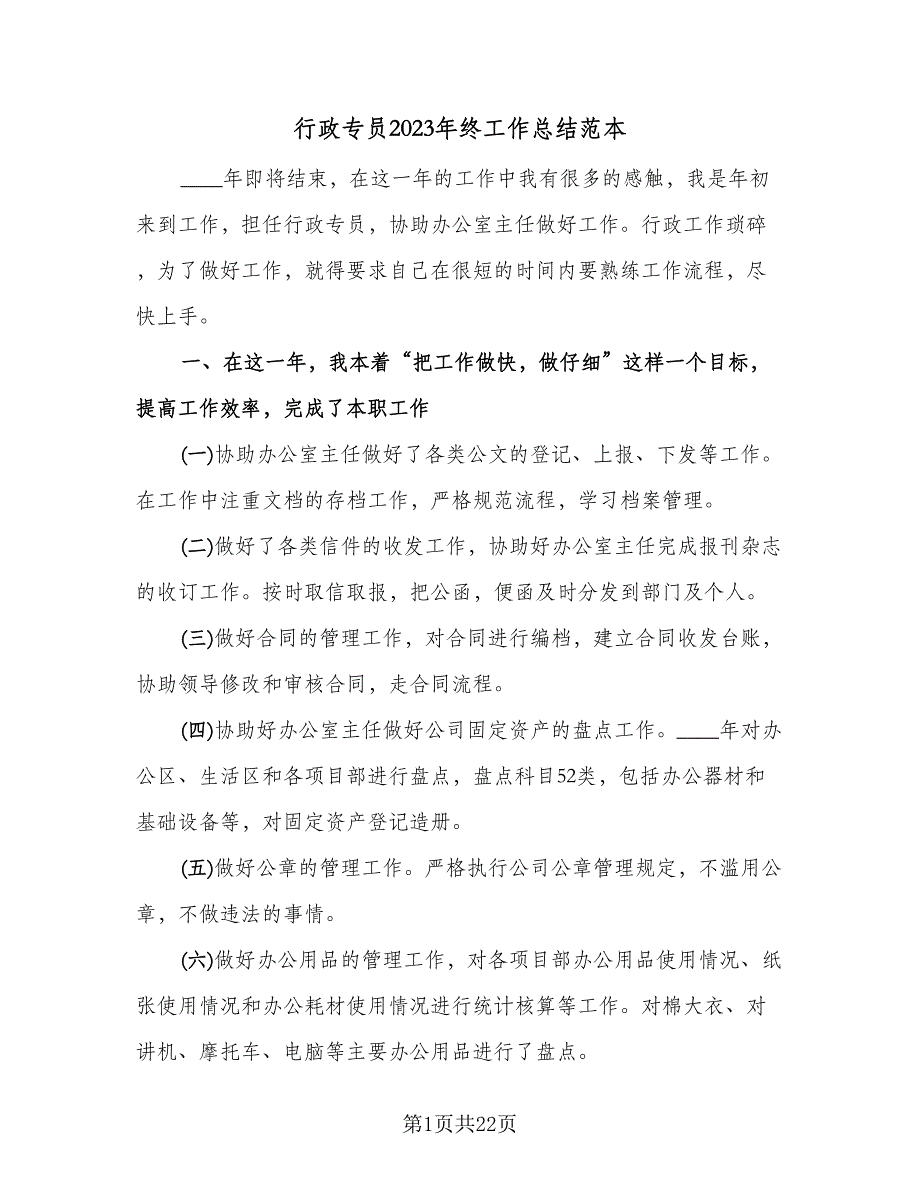 行政专员2023年终工作总结范本
____年即将结束，在这一年的工作中我有很多的感触，我是年初
来到工作，担任行政专员，协助办公室主任做好工作。行政工作琐碎
，为了做好工作，就得要求自己在很短的时间内要熟练工作流程，尽
快上手。
一、在这一年，我本着“把工作做快，做仔细”这样一个目标，
提高工作效率，完成了本职工作
(一)协助办公室主任做好了各类公文的登记、上报、下发等工作。
在工作中注重文档的存档工作，严格规范流程，学习档案管理。
(二)做好了各类信件的收发工作，协助好办公室主任完成报刊杂志
的收订工作。按时取信取报，把公函，便函及时分发到部门及个人。
(三)做好合同的管理工作，对合同进行编档，建立合同收发台账，
协助领导修改和审核合同，走合同流程。
(四)协助好办公室主任做好公司固定资产的盘点工作。____年对办
公区、生活区和各项目部进行盘点，盘点科目52类，包括办公器材和
基础设备等，对固定资产登记造册。
(五)做好公章的管理工作。严格执行公司公章管理规定，不滥用公
章，不做违法的事情。
(六)做好办公用品的管理工作，对各项目部办公用品使用情况、纸
张使用情况和办公耗材使用情况进行统计核算等工作。对棉大衣、对
讲机、摩托车、电脑等主要办公用品进行了盘点。
第1页共22页